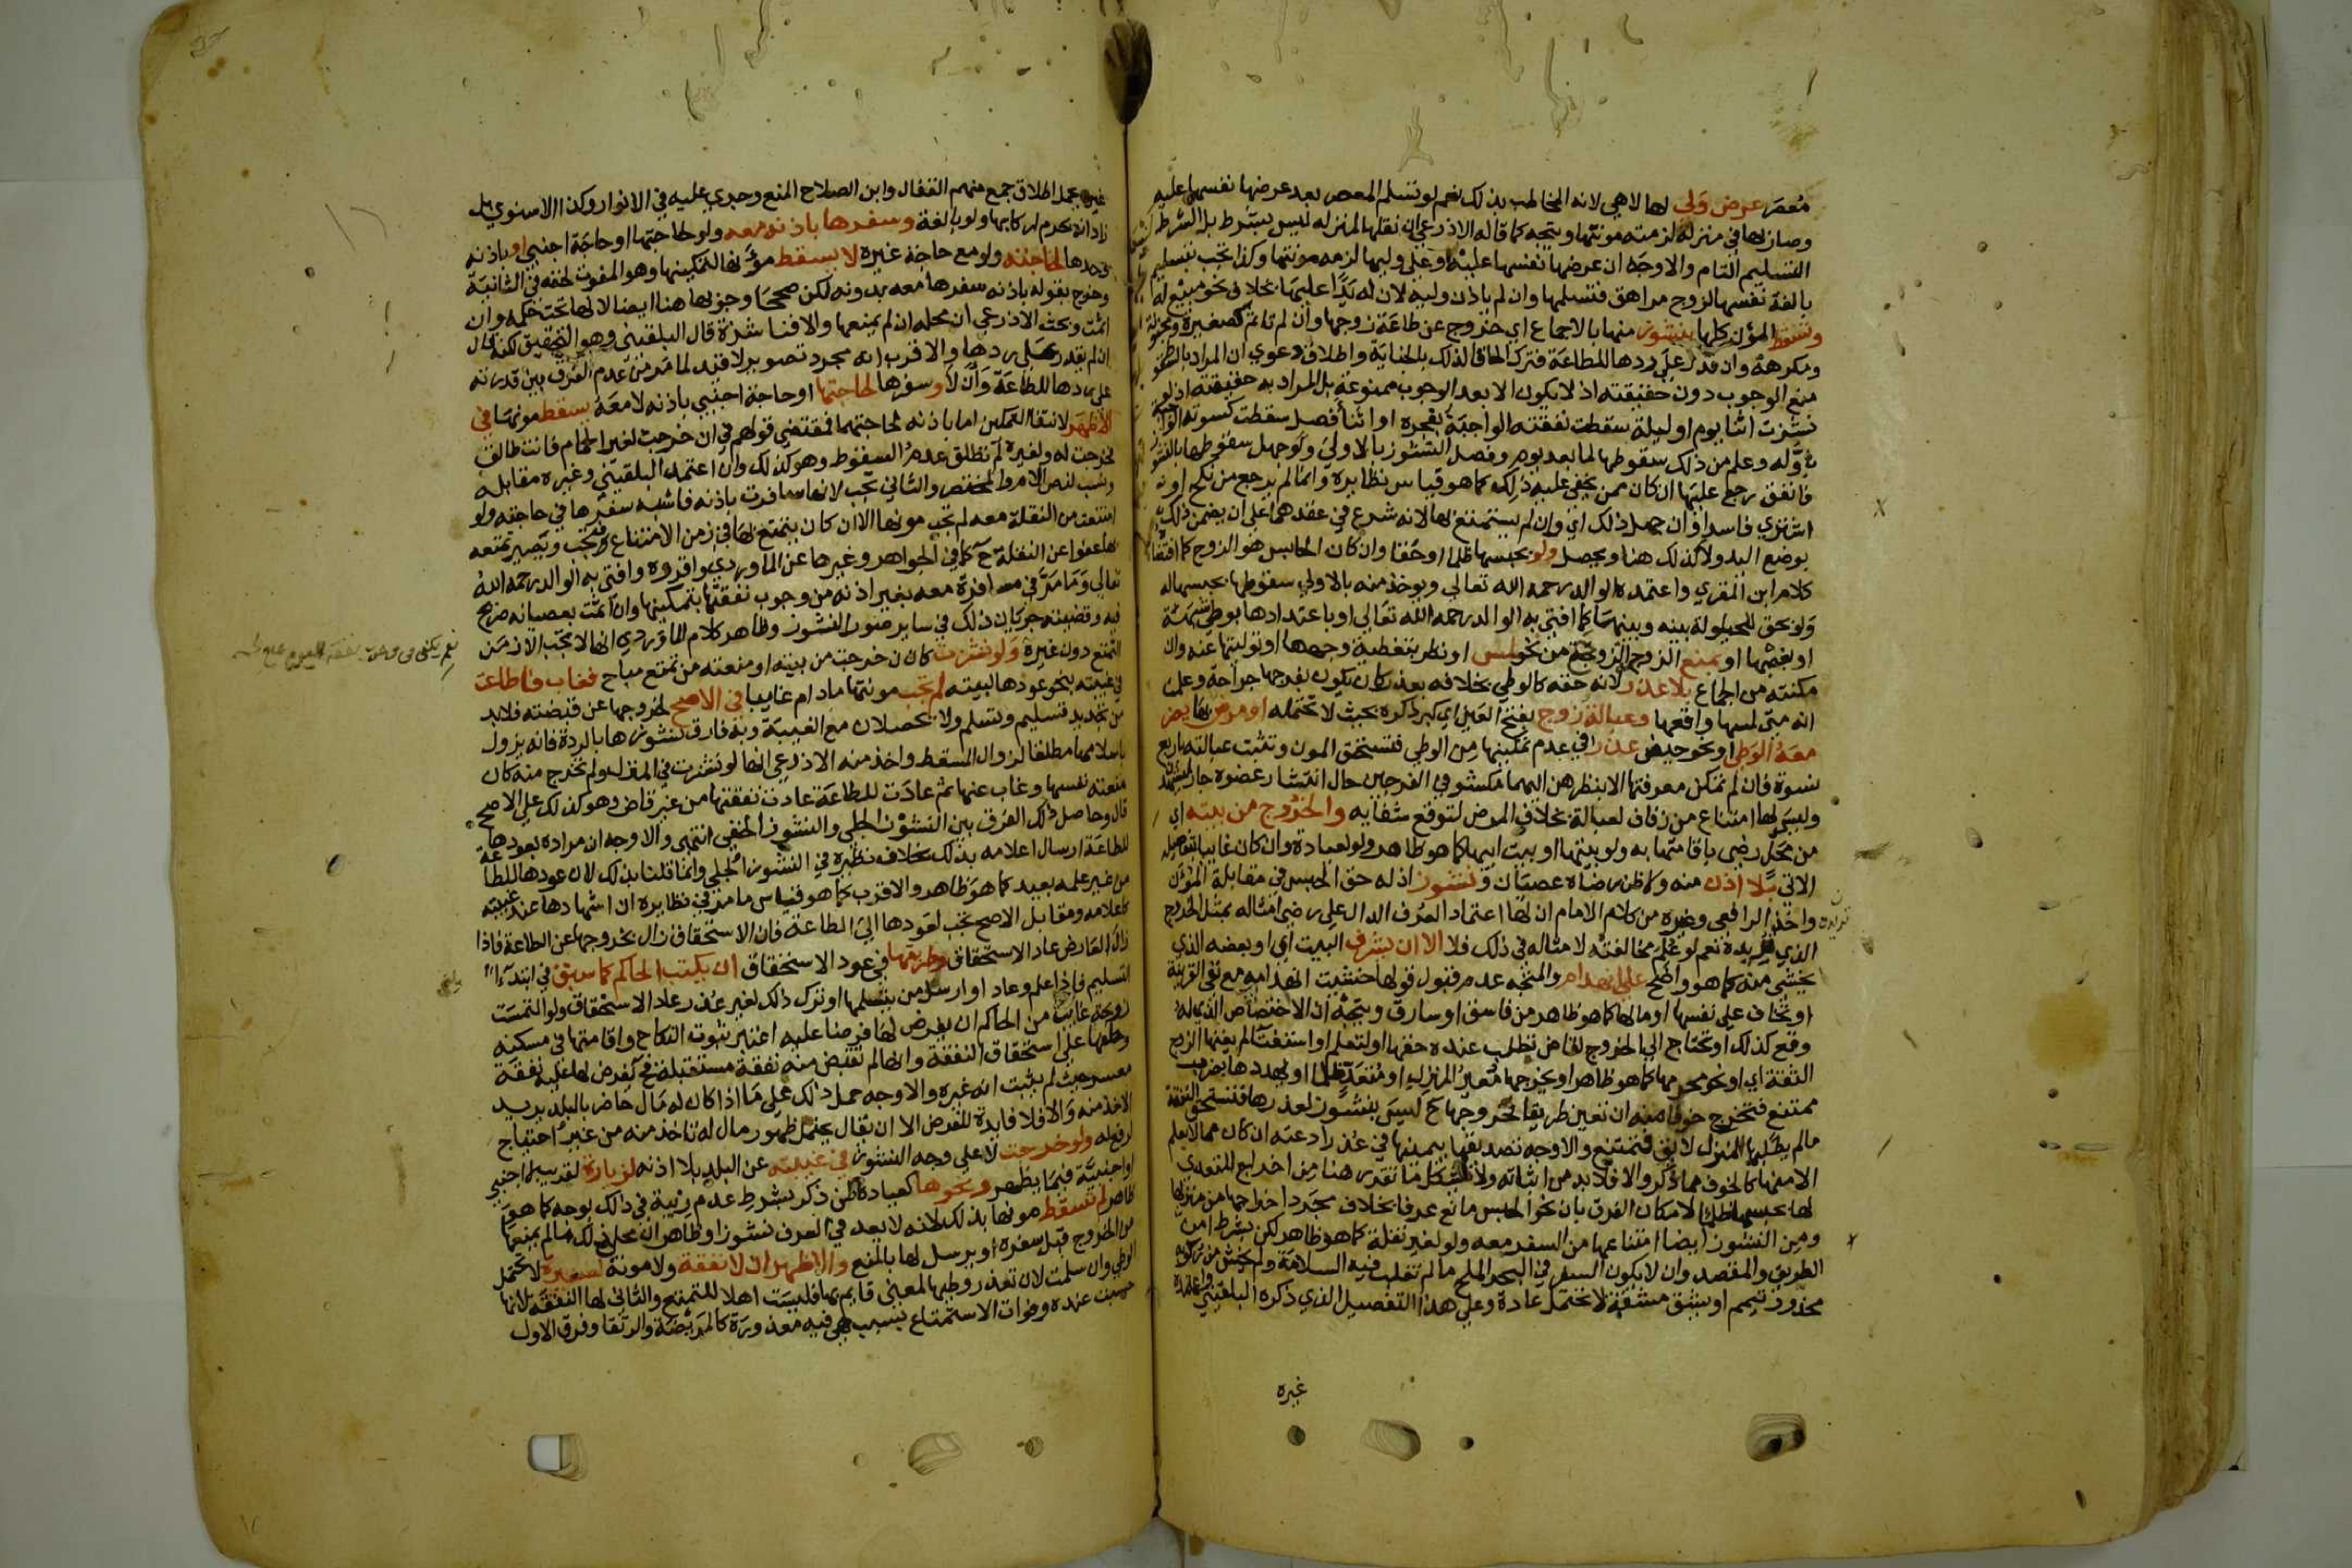 معصر عرض ولي لها لا هي لانه المخاطب بذلك نعم لو تسلم المعصر بعد عرضها نفسها عليه
وصار بها في منزله لزمته مونتها ويتجه كما قاله الاذرعي ان نقلها لمنزله ليس بشرط بل الشرط
التسليم التام والاوجه ان عرضها نفسها عليه او على وليها لزمه مونتها وكذا تجب بتسليم
بالغة نفسها لزوج مراهق فتسلمها وان لم ياذن وليه لان له يدا عليها بخلاف نحو مبيع له
وتسقط المون كلها بنشوز منها بالاجماع اي خروج عن طاعة زوجها وان لم تاثم كصغيرة ومجنونة
ومكرهة وان قدر على ردها للطاعة فترك الحاقا لذلك بالجناية واطلاق دعوي ان المراد بالسقوط
منع الوجوب دون حقيقته اذ لا يكون الا بعد الوجوب ممنوعة بل المراد به حقيقته اذ لو
نشزت اثنا يوم او ليلة سقطت نفقته الواجبة بفجره او اثنا فصل سقطت كسوته الواجبة
باوله وعلم من ذلك سقوطها لما بعد يوم وفصل النشوز بالاولي ولو جهل سقوطها بالنشوز
فانفق رجع عليها ان كان ممن يخفي عليه ذلك كما هو قياس نظايره وانما لم يرجع من نكح او
اشتري فاسدا وان جهل ذلك اي وان لم يستمتع بها لانه شرع في عقدهما على ان يضمن ذلك
بوضع اليد ولا كذلك هنا ويحصل ولو بحبسها ظلما او حقا وان كان الحابس هو الزوج كما
كلام ابن المقري واعتمده الوالد رحمه الله تعالي ويوخذ منه بالاولي سقوطها بحبسها له
ولو بحق للحيلولة بينه وبينها كما افتي به الوالد رحمه الله تعالي او باعتدادها بوطي شبهة
او بغصبها او بمنع الزوجة الزوج من نحو لمس او نظر بتغطية وجهها او توليتها عنه وان
مكنته من الجماع بلا عذر لانه حقه كالوطي بخلافه بعذر كان يكون بفرجها جراحة وعلم
انه متي لمسها واقعها وعبالة زوج بفتح العين اي كبر ذكره بحيث لا تحتمله او مرض بها يضر
معه الوطي او نحو حيض عذر في عدم تمكينها من الوطي فتستحق المون وتثبت عبالته باربع
نسوة فان لم تمكن معرفتها الا بنظرهن اليهما مكشوفي الفرجين حال انتشار عضوه جاز ليشهدن
وليس لها امتناع من زفاف لعبالة بخلاف المرض لتوقع شفايه والخروج من بيته اي
من محل رضي باقامتها به ولو ببيتها او بيت ابيها كما هو ظاهر ولو لعبادة وان كان غايبا بتفصيله
الاتي بلا اذن منه ولا ظن رضاه عصيان ونشوز اذ له حق الحبس في مقابلة المون
واخذ الرافعي وغيره من كلام الامام ان لها اعتماد العرف الدال على رضي امثاله بمثل الخروج
الذي تريده نعم لو علم مخالفته لامثاله في ذلك فلا الا ان يشرف البيت اي او بعضه الذي
يخشي منه كما هو واضح على انهدام والمتجه عدم قبول قولها خشيت انهدامه مع نفي القرينة
او تخاف على نفسها او مالها كما هو ظاهر من فاسق او سارق ويتجه ان الاختصاص الذي له
وقع كذلك او تحتاج الي الخروج لقاض تطلب عنده حقها او لتعلم او استفتا لم يغنها الزوج
الثقة اي او نحو محرمها كما هو ظاهر او يخرجها معير المنزل او متعد ظلما او يهددها بضرب
ممتنع فتخرج خوفا منه ان تعين طريقا فخروجها ح ليس بنشوز لعذرها فتستحق النفقة
مالم يطلبها لمنزل لايق فتمتنع والاوجه تصديقها بيمينها في عذر ادعته ان كان مما لا يعلم
الا منها كالخوف مما ذكر والا فلا بد من اثباته ولا يشكل ما تقرر هنا من اخراج المتعدي
لها بحبسها ظلما لامكان الفرق بان نحو الحبس مانع عرفا بخلاف مجرد اخراجها من منزلها
ومن النشوز ايضا امتناعها من السفر معه ولو لغير نقلة كما هو ظاهر لكن بشرط امن
الطريق والمقصد وان لا يكون السفر في البحر الملح مالم تغلب فيه السلامة ولم يخش من ركوبه
محذور تيمم او يشق مشقة لا تحتمل عادة وعلى هذا التفصيل الذي ذكره البلقيني واعتمده
غيره
غيره يحمل اطلاق جمع منهم القفال وابن الصلاح المنع وجري عليه في الانوار وكذا الاسنوي بل
زاد انه يحرم اركابها ولو بالغة وسفرها باذنه معه ولو لحاجتها او حاجة اجنبي او باذنه
وحدها لحاجته ولو مع حاجة غيره لا يسقط مونها لتمكينها وهو المفوت لحقه في الثانية
وخرج بقوله باذنه سفرها معه بدونه لكن صححا وجوبها هنا ايضا لانها تحت حكمه وان
اثمت وبحث الاذرعي ان محله ان لم يمنعها والا فناشزة قال البلقيني وهو التحقيق لكنه قال
ان لم يقدر على ردها والاقرب انه مجرد تصوير لا قيد لما مر من عدم الفرق بين قدرته
على ردها للطاعة وان لا وسفرها لحاجتها او حاجة اجنبي باذنه لا معه يسقط مونها في
الاظهر لانتفا التمكين اما باذنه لحاجتهما فمقتضي قولهم في ان خرجت لغير الحمام فانت طالق
فخرجت له ولغيره لم تطلق عدم السقوط وهو كذلك وان اعتمد البلقيني وغيره مقابله
ونسب لنص الام والمختصر والثاني تجب لانها سافرت باذنه فاشبه سفرها في حاجته ولو
امتنعت من النقلة معه لم تجب مونها الا ان كان يتمتع بها في زمن الامتناع فتجب ويصير تمتعه
بها عفوا عن النقلة ح كما في الجواهر وغيرها عن الماوردي واقروه وافتي به الوالد رحمه الله
تعالي وما مر في مسافرة معه بغير اذنه من وجوب نفقتها بتمكينها وان اثمت بعصيانه صريح
فيه وقضيته جريان ذلك في ساير صور النشوز وظاهر كلام الماوردي انها لا تجب الا زمن
التمتع دون غيره ولو نشزت كان خرجت من بيته او منعته من تمتع مباح فغاب فاطاعت
في غيبته بنحو عودها لبيته لم تجب مونتها مادام غايبا في الاصح لخروجها عن قبضته فلا بد
من تجديد تسليم وتسلم ولا يحصلان مع الغيبة وبه فارق نشوزها بالردة فانه يزول
باسلامها مطلقا لزوال المسقط واخذ منه الاذرعي انها لو نشزت في المنزل ولم تخرج منه كان
منعته نفسها وغاب عنها ثم عادت للطاعة عادت نفقتها من غير قاض وهو كذلك على الاصح
قال وحاصل ذلك الفرق بين النشوز الجلي والنشوز الخفي انتهي والاوجه ان مراده بعودها
للطاعة ارسال اعلامه بذلك بخلاف نظيره في النشوز الجلي وانما قلنا بذلك لان عودها للطاعة
من غير علمه بعيد كما هو ظاهر والاقرب كما هو قياس ما مر في نظايره ان اشهادها عند غيبته
كاعلامه ومقابل الاصح تجب لعودها الي الطاعة فان الاستحقاق زال بخروجها عن الطاعة فاذا
زال العارض عاد الاستحقاق وطريقها في عود الاستحقاق ان يكتب الحاكم كما سبق في ابتداء
التسليم فاذا علم وعاد او ارسل من يتسلمها او ترك ذلك لغير عذر عاد الاستحقاق ولو التمست
زوجة غايب من الحاكم ان يفرض لها فرضا عليه اعتبر ثبوت النكاح واقامتها في مسكنه
وحلفها على استحقاق النفقة وانها لم تقبض منه نفقة مستقبلة فح يفرض لها عليه نفقة
معسر حيث لم يثبت انه غيره والاوجه حمل ذلك على ما اذا كان له مال حاضر بالبلد يريد
الاخذ منه والا فلا فايدة للفرض الا ان يقال يحتمل ظهور مال له تاخذ منه من غير احتياج
لرفع له ولو خرجت لا على وجه النشوز في غيبته عن البلد بلا اذنه لزيارة لقريب لا اجنبي
او اجنبية فيما يظهر ونحوها كعيادة لمن ذكر بشرط عدم ريبة في ذلك بوجه كما هو
ظاهر لم تسقط مونها بذلك لانه لا يعد في العرف نشوزا وظاهر ان محل ذلك مالم يمنعها
من الخروج قبل سفره او يرسل لها بالمنع والاظهر ان لا نفقة ولا مونة لصغيرة لا تحتمل
الوطي وان سلمت لان تعذر وطيها لمعني قايم بها فليست اهلا للتمتع والثاني لها النفقة لانها
حبست عنده وفوات الاستمتاع بسبب هي فيه معذورة كالمريضة والرتقا وفرق الاول